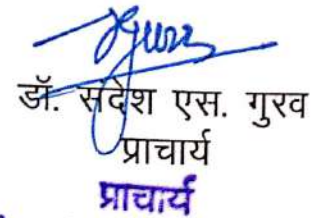 डॉ. संदेश एस. गुरव
प्राचार्य
प्राचार्य